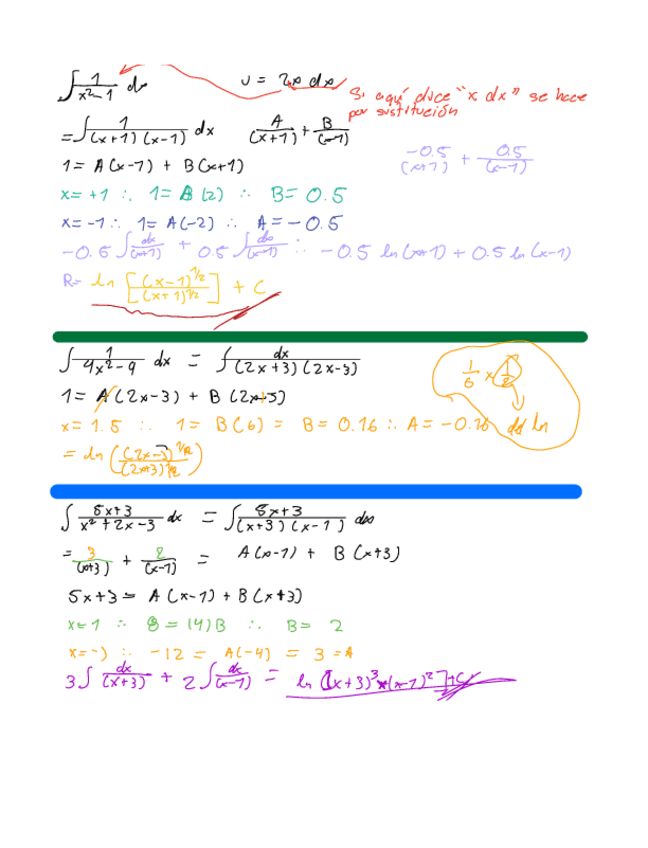 ∫ 1/(x²-1) dx    U = 2x dx
Si aquí dice "x dx" se hace
por sustitución
= ∫ 1/((x+1)(x-1)) dx    A/(x+1) + B/(x-1)
1 = A(x-1) + B(x+1)    -0.5/(x+1) + 0.5/(x-1)
x = +1 ∴ 1 = B(2) ∴ B = 0.5
x = -1 ∴ 1 = A(-2) ∴ A = -0.5
-0.5 ∫ dx/(x+1) + 0.5 ∫ dx/(x-1) ∴ -0.5 ln(x+1) + 0.5 ln(x-1)
R = ln [(x-1)^1/2 / (x+1)^1/2] + C
∫ 1/(4x²-9) dx = ∫ dx/((2x+3)(2x-3))    1/6 x 1/2
1 = A(2x-3) + B(2x+3)
x = 1.5 ∴ 1 = B(6) = B = 0.16 ∴ A = -0.16    ln
= ln ((2x-3)^1/12 / (2x+3)^1/12)
∫ (5x+3)/(x²+2x-3) dx = ∫ (5x+3)/((x+3)(x-1)) dx
= 3/(x+3) + 2/(x-1) = A(x-1) + B(x+3)
5x+3 = A(x-1) + B(x+3)
x = 1 ∴ 8 = (4)B ∴ B = 2
x = -3 ∴ -12 = A(-4) = 3 = A
3 ∫ dx/(x+3) + 2 ∫ dx/(x-1) = ln [(x+3)³ * (x-1)²] + C